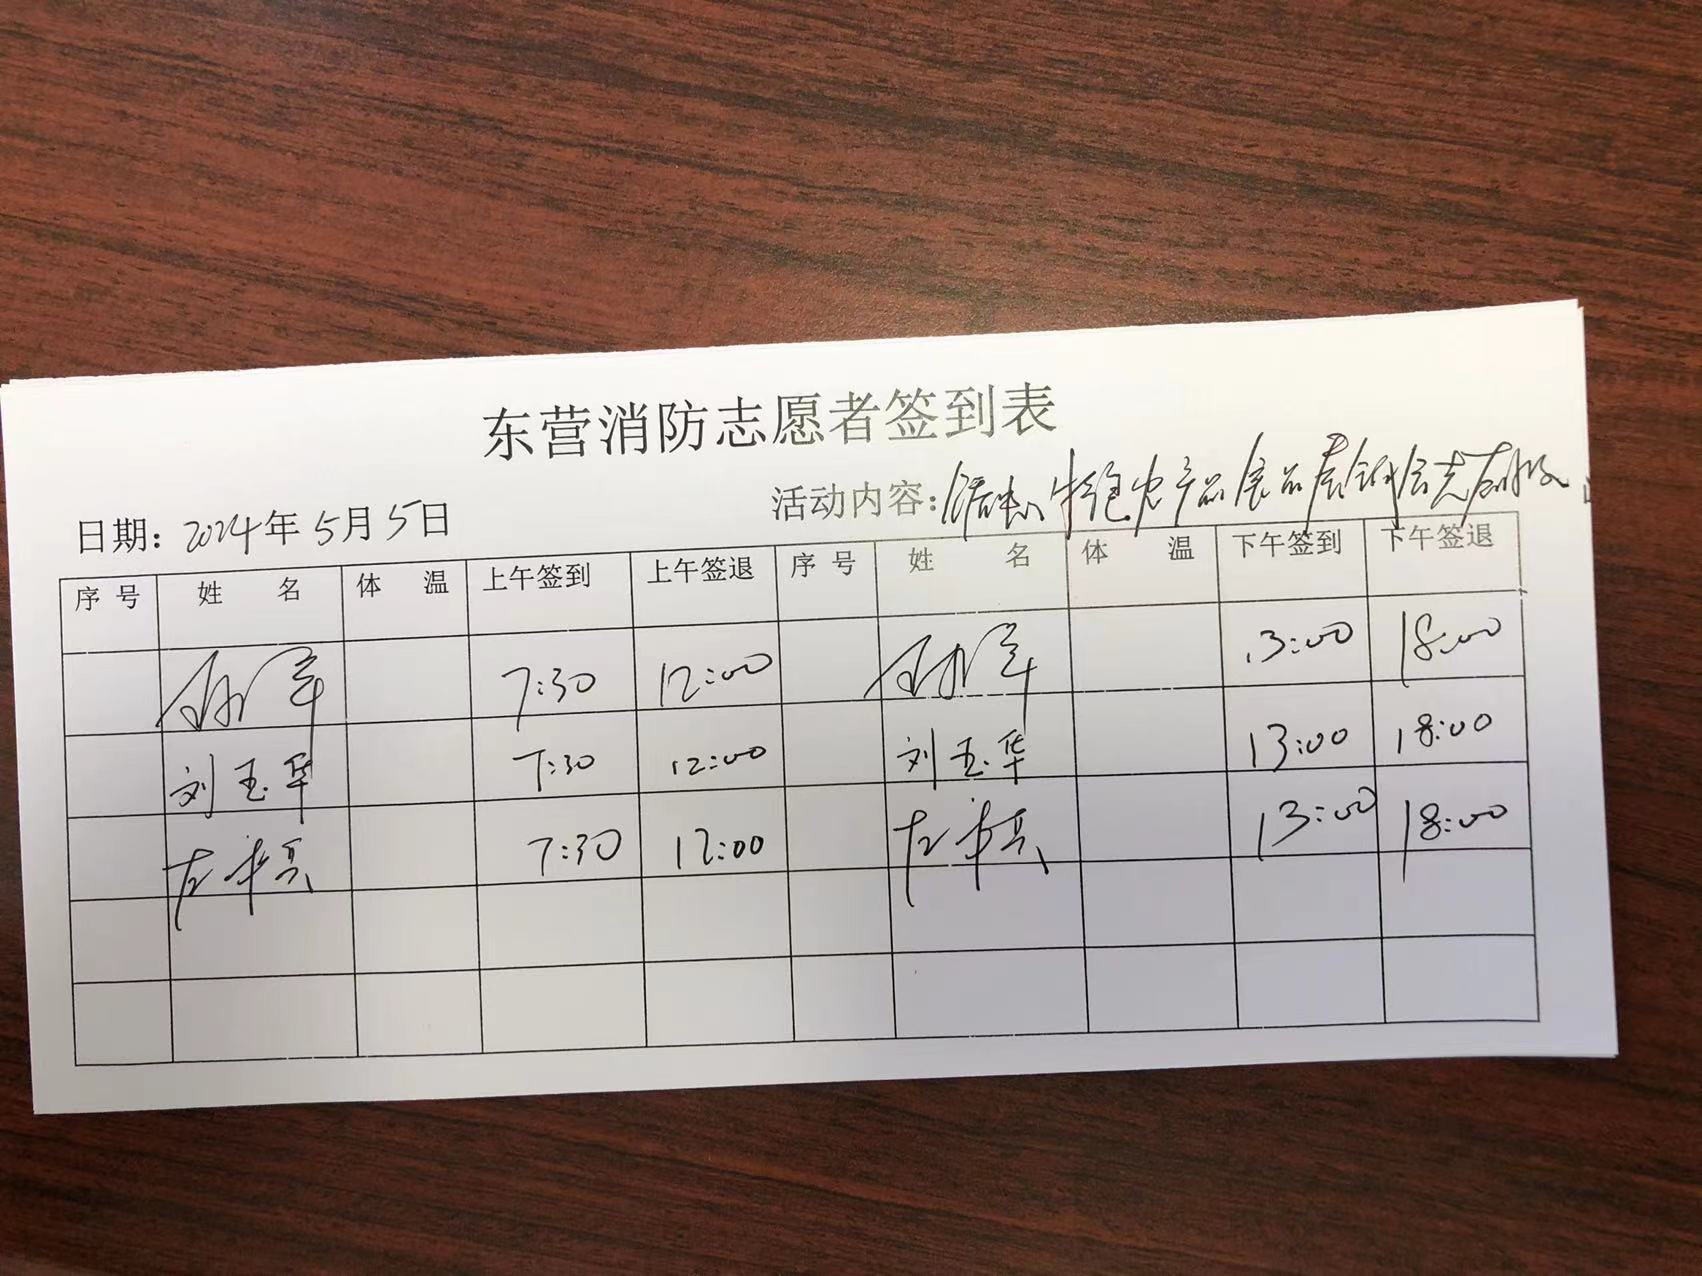 东营消防志愿者签到表
日期：2024年5月5日 活动内容：农产品展品展销会志
序号 姓名 体温 上午签到 上午签退 序号 姓名 体温 下午签到 下午签退
7:30 12:00 13:00 18:00
刘玉华 7:30 12:00 刘玉华 13:00 18:00
7:30 12:00 13:00 18:00